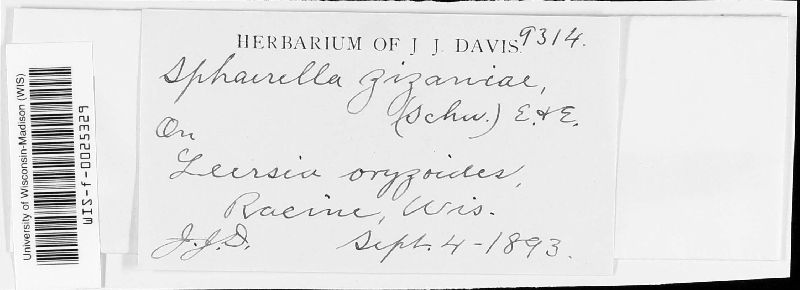 HERBARIUM OF J. J. DAVIS. 9314.
Sphaerella zizaniae,
(Schw.) E. & E.
On
Leersia oryzoides,
Racine, Wis.
J.J.D. Sept. 4 - 1893.
University of Wisconsin-Madison (WIS)
WIS-f-0025329